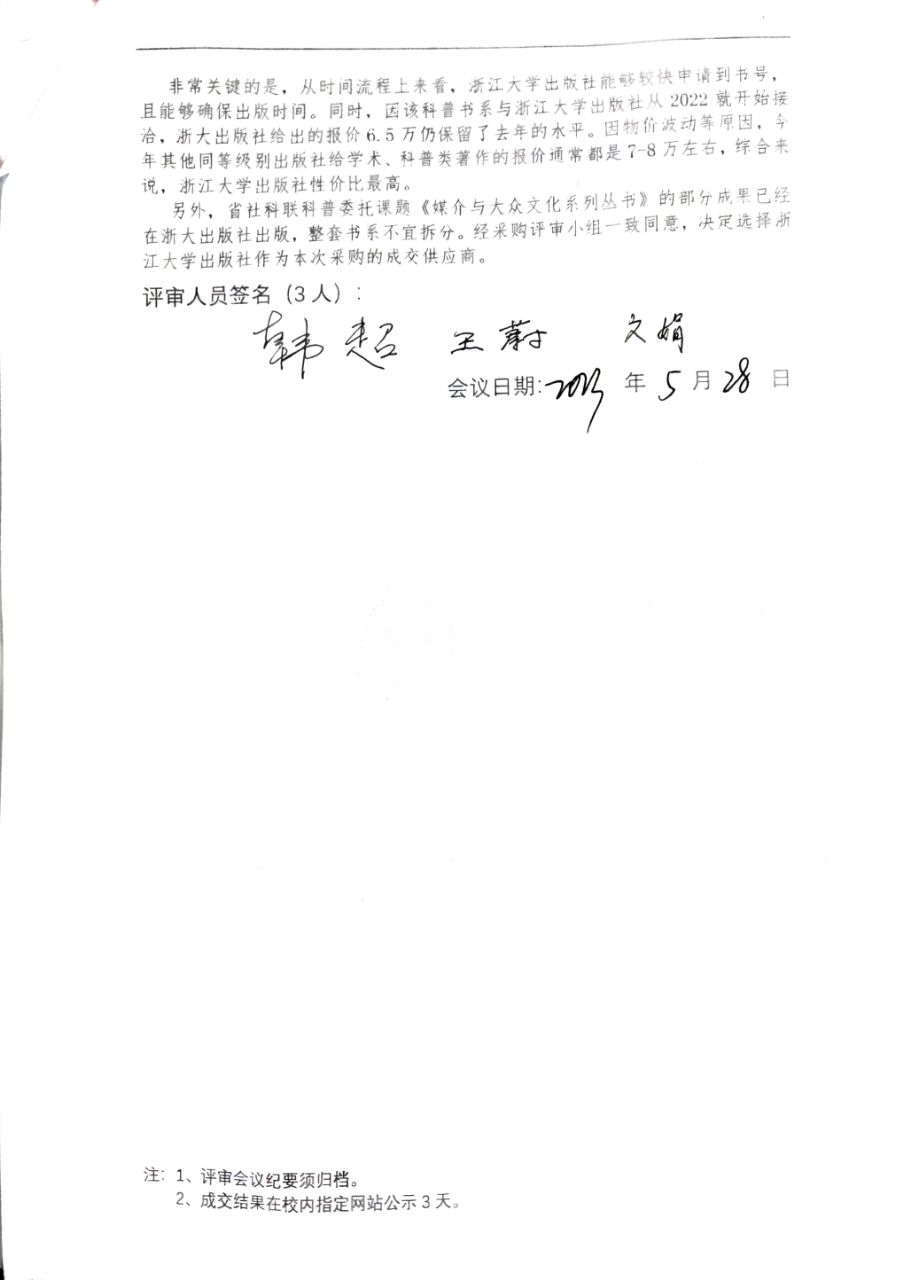 非常关键的是，从时间流程上来看，浙江大学出版社能够较快申请到书号，
且能够确保出版时间。同时，因该科普书系与浙江大学出版社从 2022 就开始接
洽，浙大出版社给出的报价 6.5 万仍保留了去年的水平。因物价波动等原因，今
年其他同等级别出版社给学术、科普类著作的报价通常都是 7-8 万左右，综合来
说，浙江大学出版社性价比最高。
另外，省社科联科普委托课题《媒介与大众文化系列丛书》的部分成果已经
在浙大出版社出版，整套书系不宜拆分。经采购评审小组一致同意，决定选择浙
江大学出版社作为本次采购的成交供应商。
评审人员签名（3 人）：
韩超 王蔚 文娟
会议日期: 2023 年 5 月 28 日
注：1、评审会议纪要须归档。
2、成交结果在校内指定网站公示 3 天。